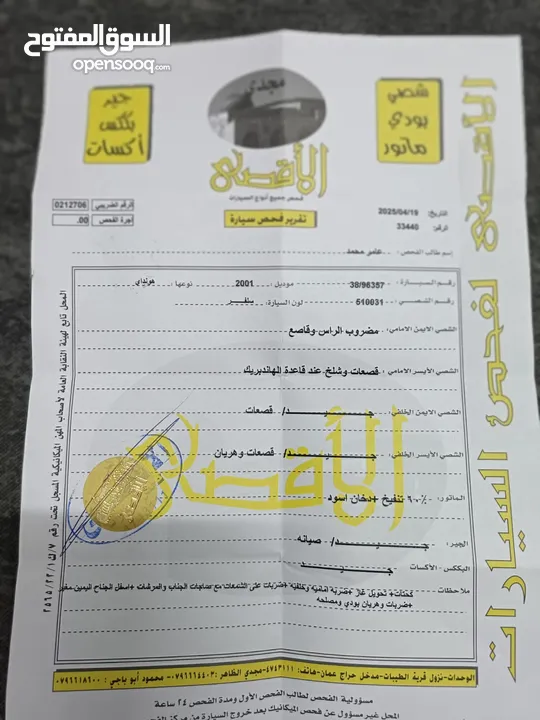 السوق المفتوح
opensooq.com
جير
بكس
أكسات
مجدي
شصي
بودي
ماتور
الأقصى
فحص جميع أنواع السيارات
تقرير فحص سيارة
الرقم الضريبي 0212706
اجرة الفحص .00
التاريخ: 2025/04/19
الرقم: 33440
إسم طالب الفحص: عامر محمد
رقم السيارة: 38/96357 موديل: 2001 نوعها: هونداي
رقم الشصي: 510031 لون السيارة:
الشصي الايمن الامامي: مضروب الراس وقاصع
الشصي الأيسر الامامي: قصعات وشلخ عند قاعدة الهاندبريك
الشصي الايمن الخلفي: جيد/ قصعات
الشصي الايسر الخلفي: جيد/ قصعات وهريان
الماتور: ٦٠٪ تنفيخ +دخان اسود
الجير: جيد/ صيانه
البككس الأكسات: جيد
ملاحظات: كحتات+ تحويل غاز +ضربة امامية وخلفية +ضربات على الشمعات مع صاجات الجناب والمرشات + اسفل الجناح اليمين مغير
+ضربات وهريان بودي ومصلحه
الأقصى
الأقصى لفحص السيارات
المحل تابع لهيئة النقابة العامة لأصحاب المهن الميكانيكية المسجل تحت رقم
الوحدات-نزول قرية الطيبات-مدخل حراج عمان-هاتف: ٤٧٤٣١١١-مجدي الظاهر: ٠٧٩٦٦١٤٤٠٣- محمود أبو باجي: ٠٧٩٦٦١٨٦٠٠
مسؤولية الفحص لطالب الفحص الأول ومدة الفحص ٢٤ ساعة
المحل غير مسؤول عن فحص الميكانيك بعد خروج السيارة من مركز